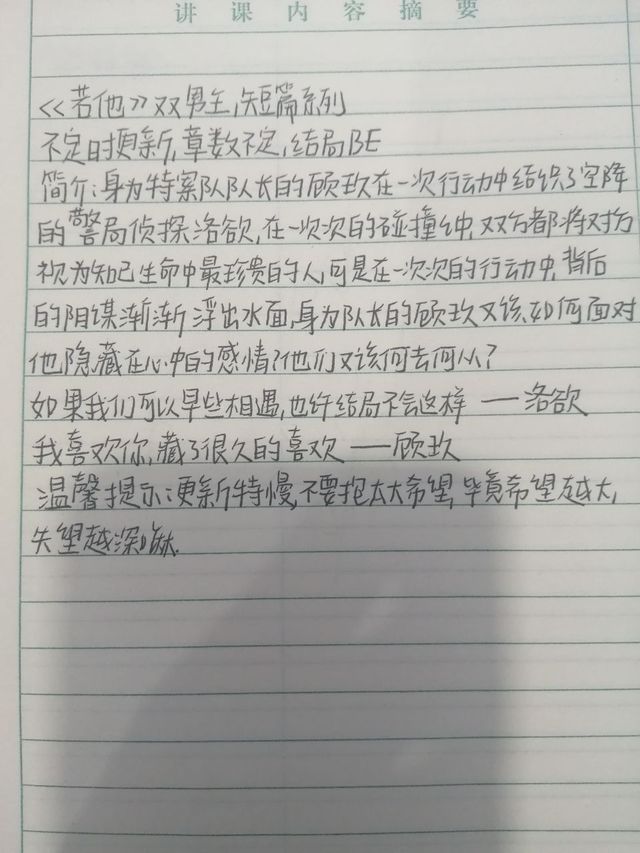 讲课内容摘要
《若他》双男主,短篇系列
不定时更新,章数不定,结局BE
简介:身为特案队队长的顾玖在一次行动中结识了空降
的警局侦探洛欲,在一次次的碰撞中,双方都将对方
视为知己生命中最珍贵的人,可是在一次次的行动中,背后
的阴谋渐渐浮出水面,身为队长的顾玖又该如何面对
他隐藏在心中的感情?他们又该何去何从?
如果我们可以早些相遇,也许结局不会这样——洛欲
我喜欢你,藏了很久的喜欢——顾玖
温馨提示:更新特慢,不要抱太大希望,毕竟希望越大,
失望越深嘛.